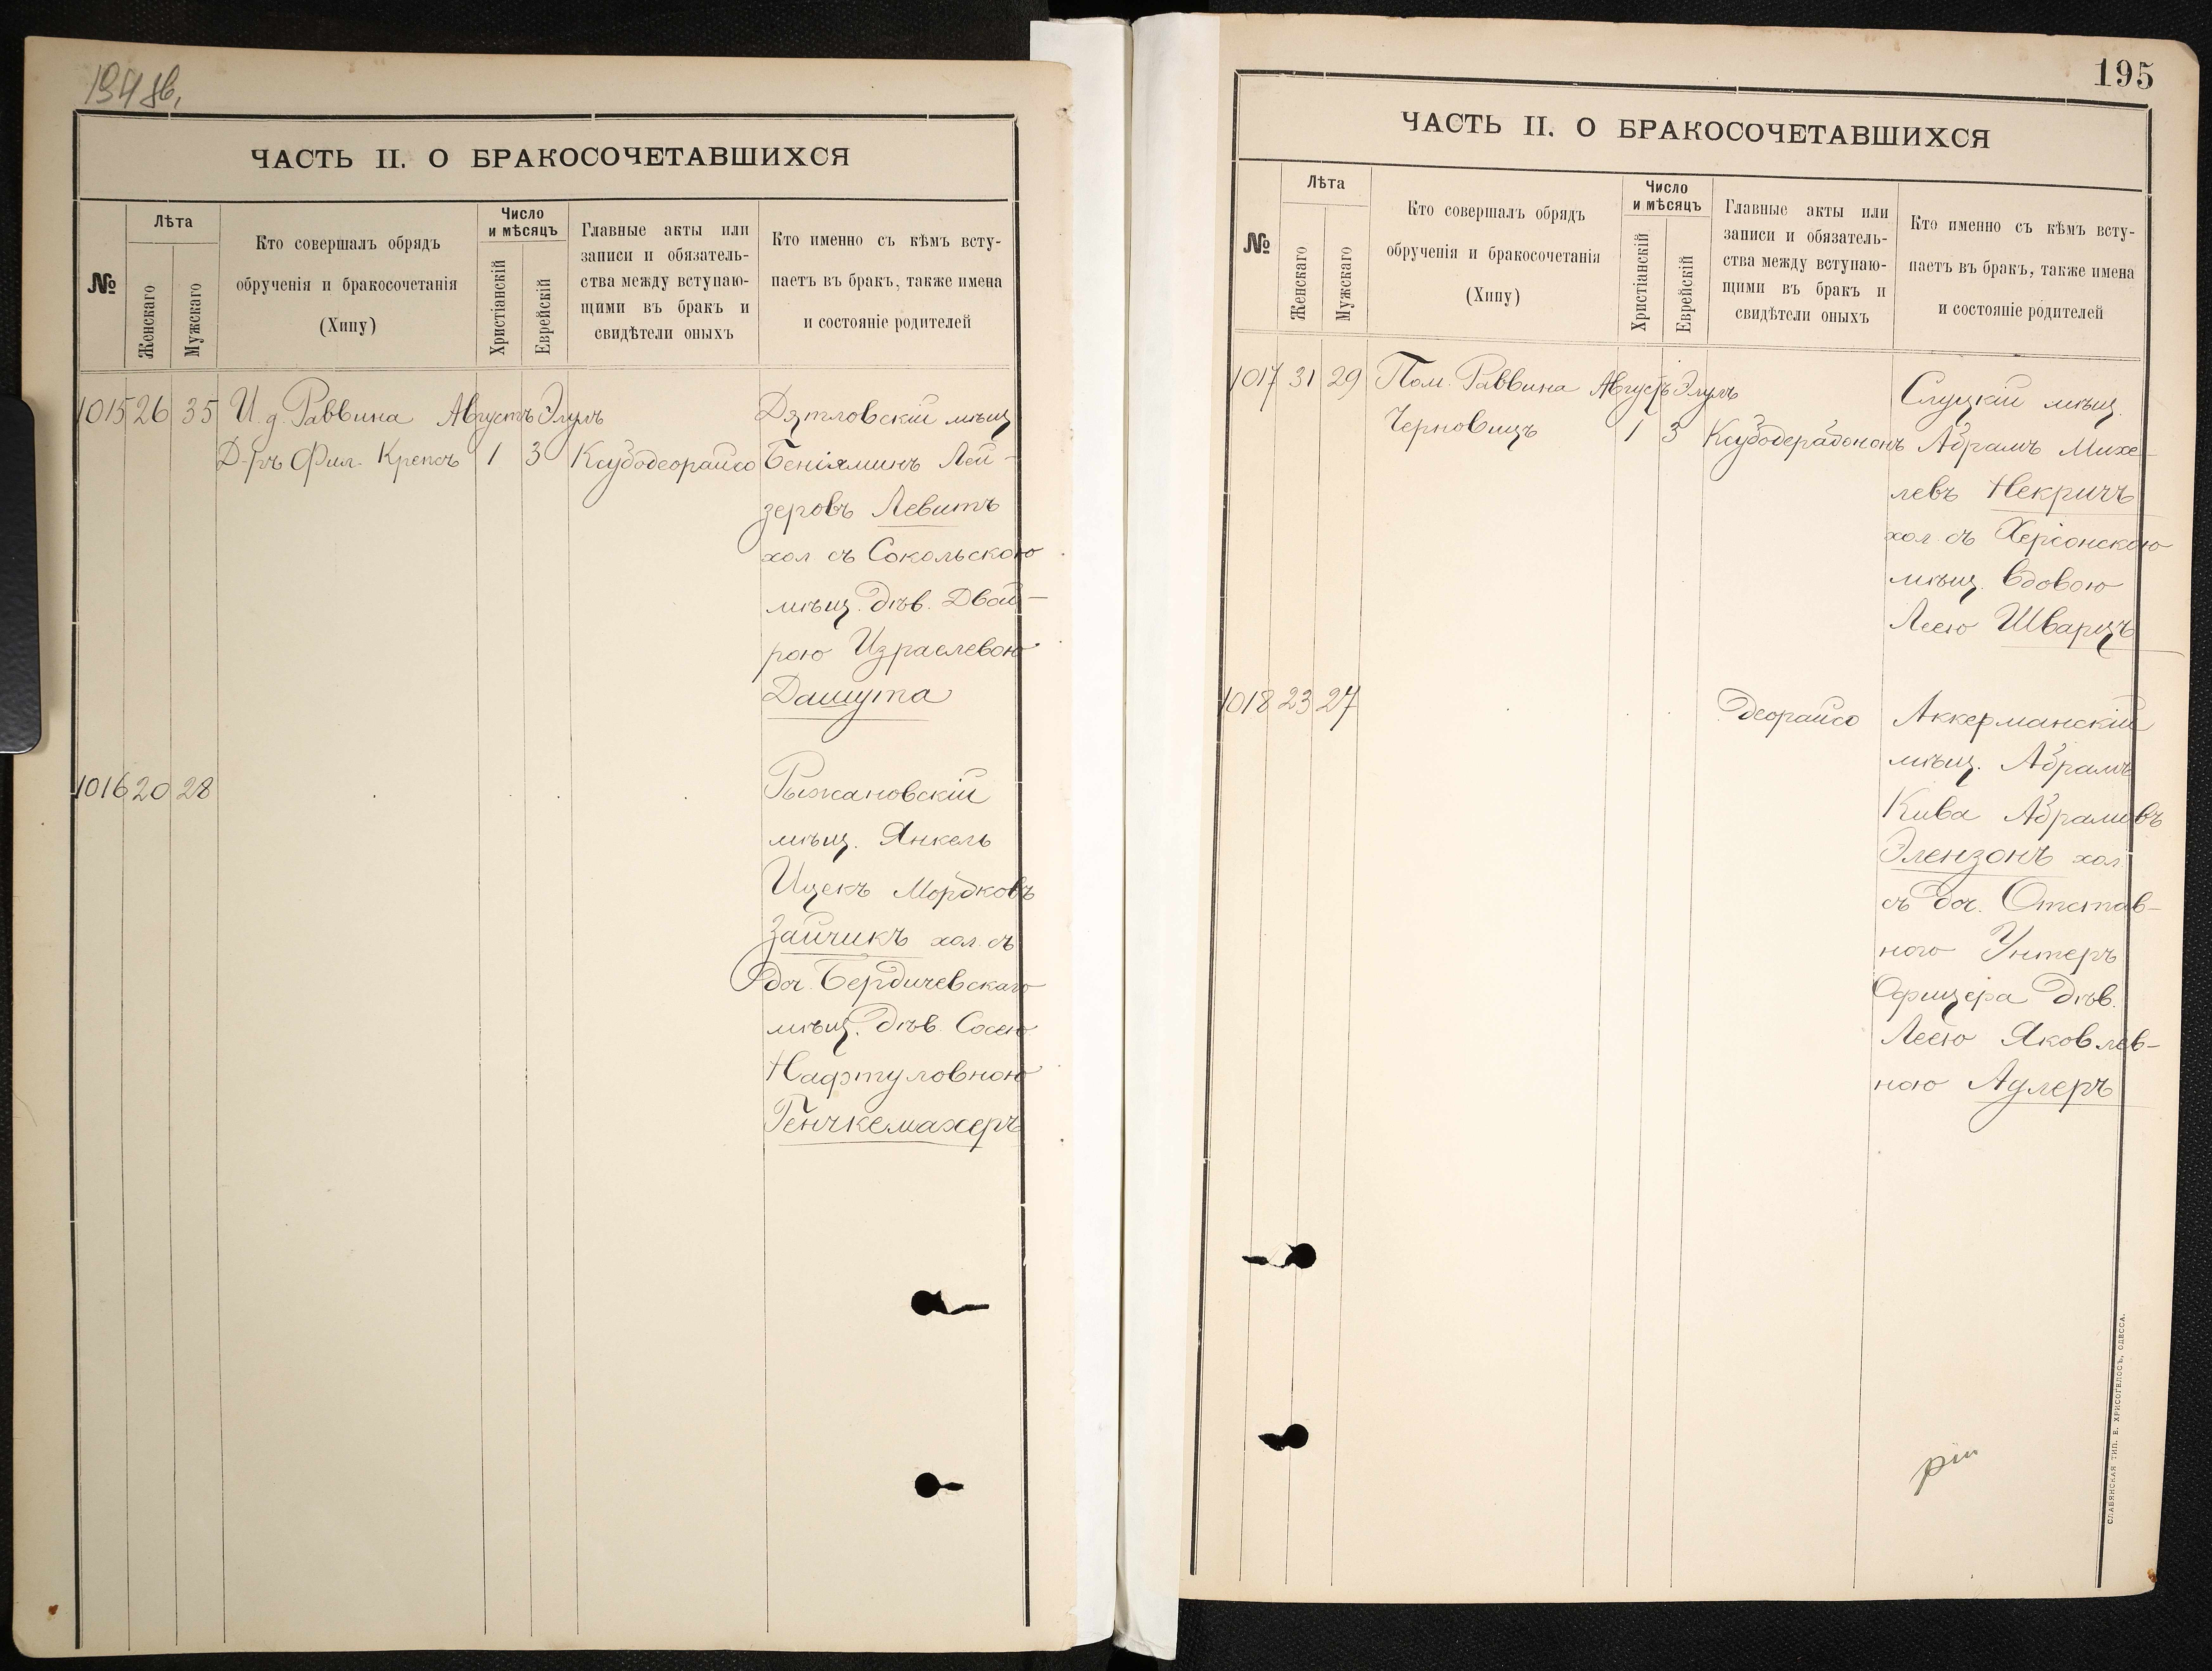 194 об.
ЧАСТЬ II. О БРАКОСОЧЕТАВШИХСЯ
№
Лѣта
Женскаго
Мужскаго
Кто совершалъ обрядъ
обрученія и бракосочетанія
(Хипу)
Число
и мѣсяцъ
Христіанскій
Еврейскій
Главные акты или
записи и обязатель-
ства между вступаю-
щими въ бракъ и
свидѣтели оныхъ
Кто именно съ кѣмъ всту-
паетъ въ бракъ, также имена
и состояніе родителей
1015 26 35 И. д. Раввина Августъ Элулъ Дятловскій мѣщ
Д-ръ Фил. Крепсъ 1 3 Ксубодеорайсо Беніяминъ Лей-
зеровъ Левитъ
хол съ Сокольскою
мѣщ. дѣв. Двой-
рою Израелевою
Дашута
1016 20 28 Рыжановскій
мѣщ. Янкель
Ицекъ Мордковъ
Зайчикъ хол. съ
доч. Бердичевскаго
мѣщ. дѣв. Сосею
Нафтуловною
Генчкемахеръ
195
ЧАСТЬ II. О БРАКОСОЧЕТАВШИХСЯ
№
Лѣта
Женскаго
Мужскаго
Кто совершалъ обрядъ
обрученія и бракосочетанія
(Хипу)
Число
и мѣсяцъ
Христіанскій
Еврейскій
Главные акты или
записи и обязатель-
ства между вступаю-
щими въ бракъ и
свидѣтели оныхъ
Кто именно съ кѣмъ всту-
паетъ въ бракъ, также имена
и состояніе родителей
1017 31 29 Пом. Раввина Августъ Элулъ Слуцкій мѣщ.
Черновицъ 1 3 Ксубодерабононъ Абрамъ Михе-
левъ Некричъ
хол. съ Херсонскою
мѣщ. вдовою
Леею Шварцъ
1018 23 27 деорайсо Аккерманскій
мѣщ. Абрамъ
Кива Абрамовъ
Элензонъ хол.
съ доч. Отстав-
ного Унтеръ
Офицера дѣв.
Леею Яковлев-
ною Адлеръ
СЛАВЯНСКАЯ ТИП. Е. ХРИСОГЕЛОСЪ, ОДЕССА.